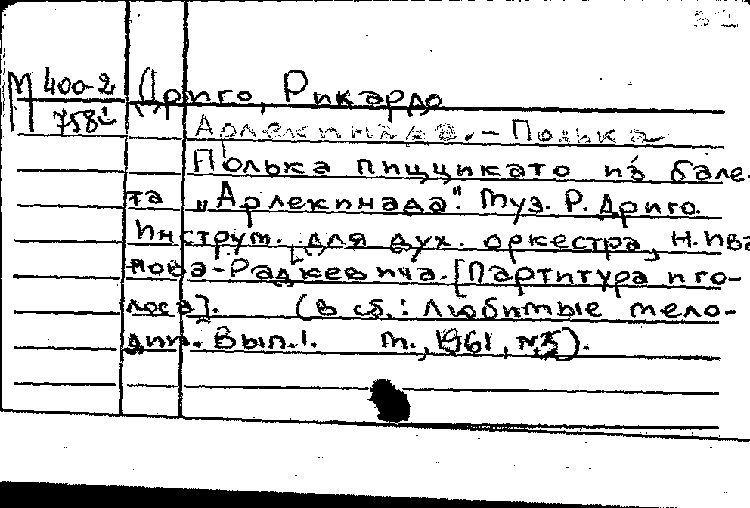 М 400-2
758
Дриго, Рикардо
Арлекинада. - Полька
Полька пиццикато из бале-
та „Арлекинада". Муз. Р. Дриго.
Инструм. для дух. оркестра, Н. Ива
нова-Радкевича. [Партитура и го-
лоса]. (в сб.: Любимые мело-
дии. Вып. 1. М., 1961, №3).